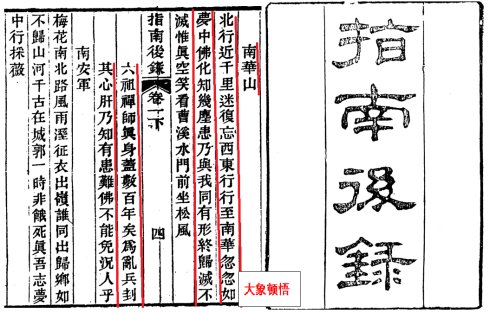 指南後錄
南華山
北行近千里迷復忘西東行行至南華忽忽如
夢中佛化知幾塵患乃與我同有形終歸滅不
滅惟眞空笑看曹溪水門前坐松風
指南後錄 卷一下 四
六祖禪師眞身蓋數百年矣為亂兵刲
其心肝乃知有患難佛不能免況人乎
南安軍
梅花南北路風雨溼征衣出嶺誰同出歸鄉如
不歸山河千古在城郭一時非餓死眞吾志夢
中行採薇
大象顿悟